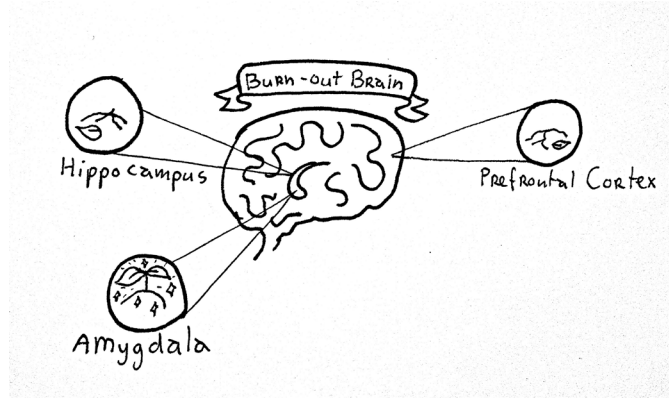 Burn-out Brain
Hippocampus
Prefrontal Cortex
Amygdala